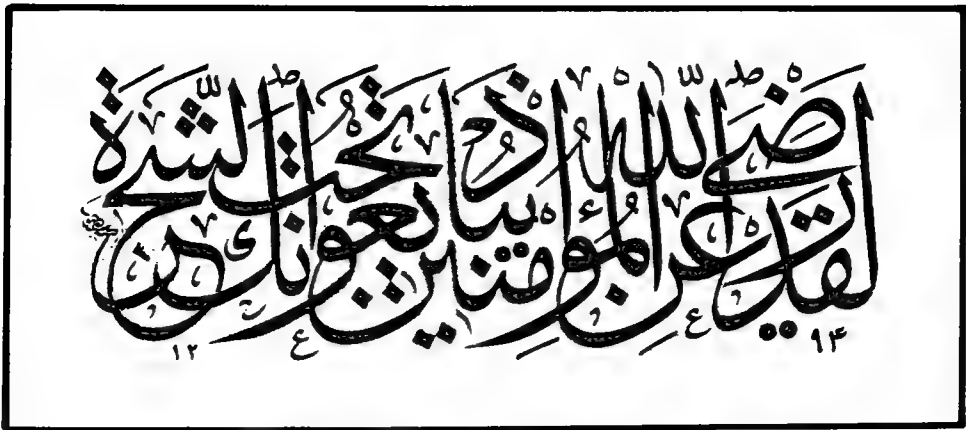 لَقَدْ رَضِيَ اللّٰهُ عَنِ الْمُؤْمِنِينَ إِذْ يُبَايِعُونَكَ تَحْتَ الشَّجَرَةِ
١٢ ٩۴